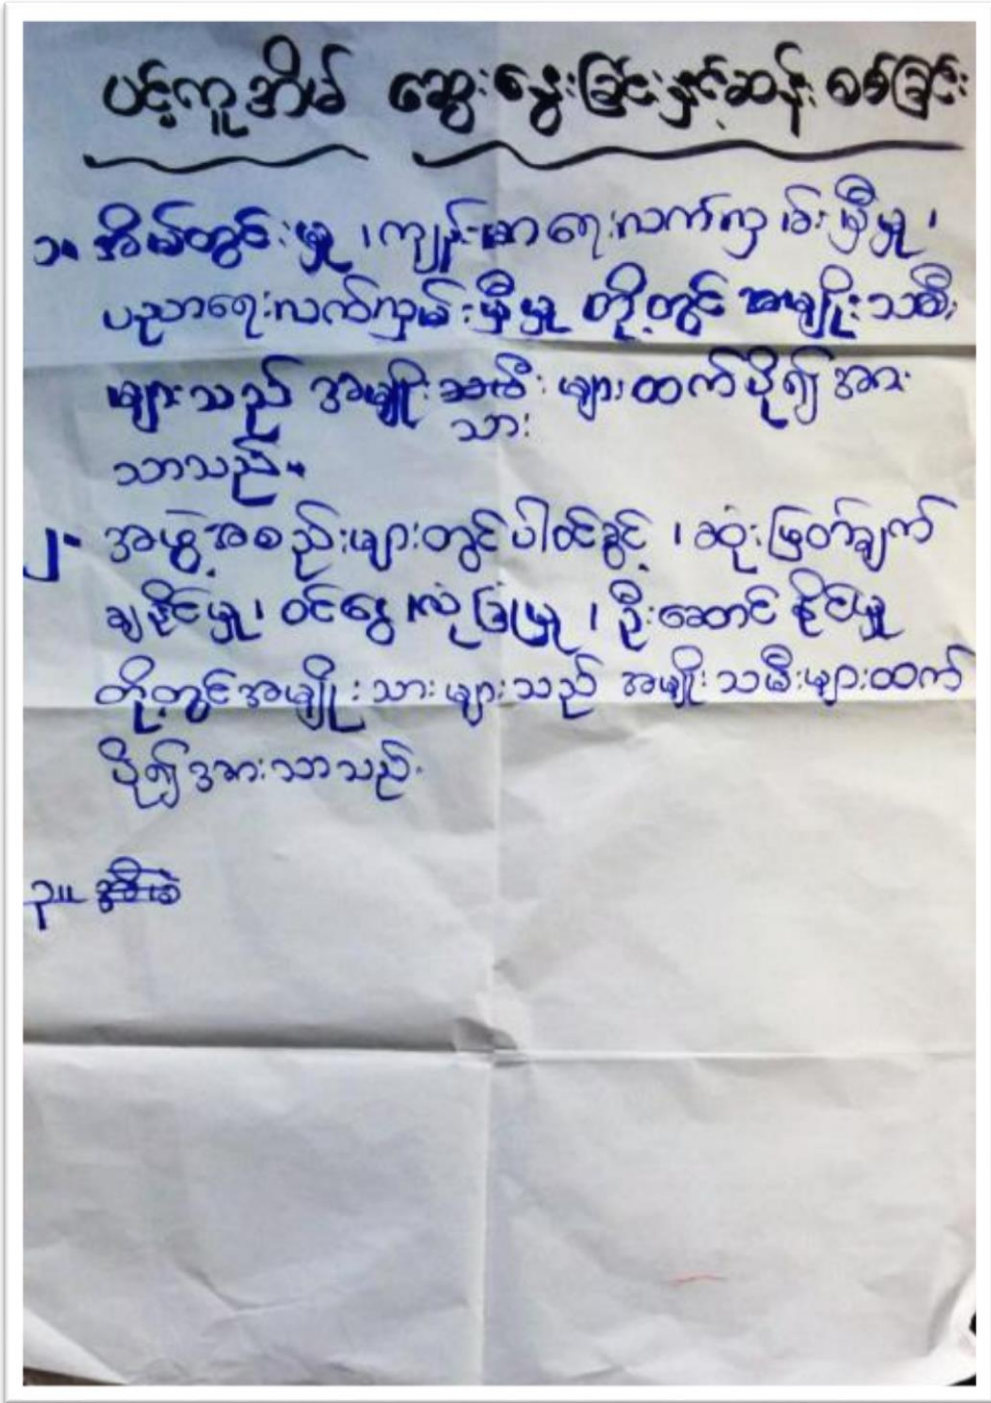 ပင့်ကူအိမ် ဆွေးနွေးခြင်းနှင့်ဆန်းစစ်ခြင်း
၁။ အိမ်တွင်းမှု၊ ကျန်းမာရေးလက်လှမ်းမှီမှု၊
ပညာရေးလက်လှမ်းမှီမှု တို့တွင် အမျိုးသမီး
များသည် အမျိုး များထက်ပို၍ အား
သား
သာသည်။
၂- အဖွဲ့အစည်းများတွင်ပါဝင်ခွင့်၊ ဆုံးဖြတ်ချက်
ချနိုင်မှု၊ ဝင်ငွေ လုံခြုံမှု၊ ဦးဆောင်နိုင်မှု
တို့တွင်အမျိုးသားများသည် အမျိုးသမီးများထက်
ပို၍အားသာသည်.
၃။